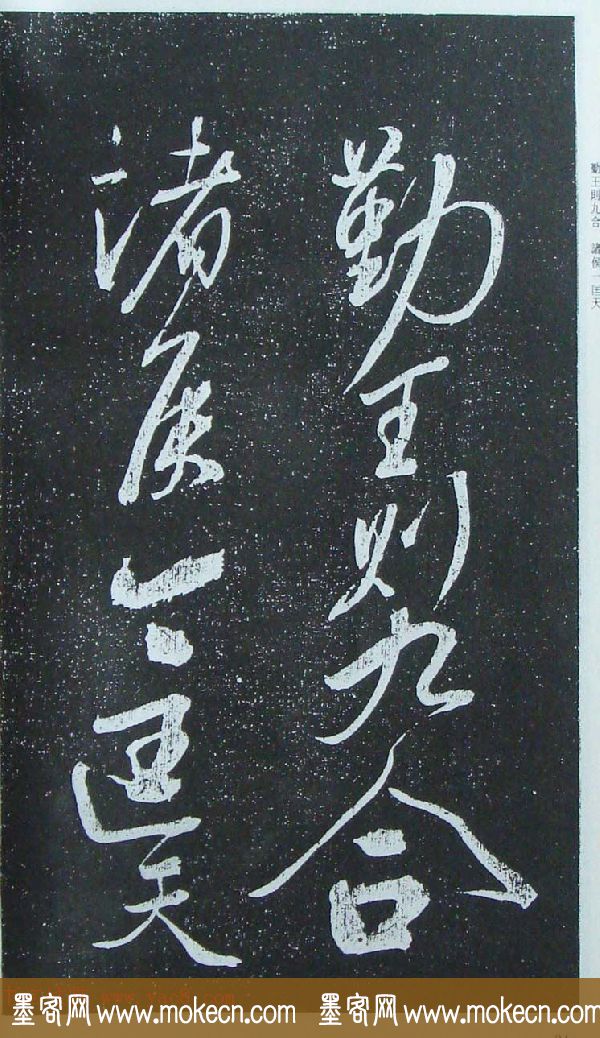 勤王則九合
諸侯一匡天
勤王則九合 諸侯一匡天
墨客网 www.mokecn.com 墨客网 www.mokecn.com